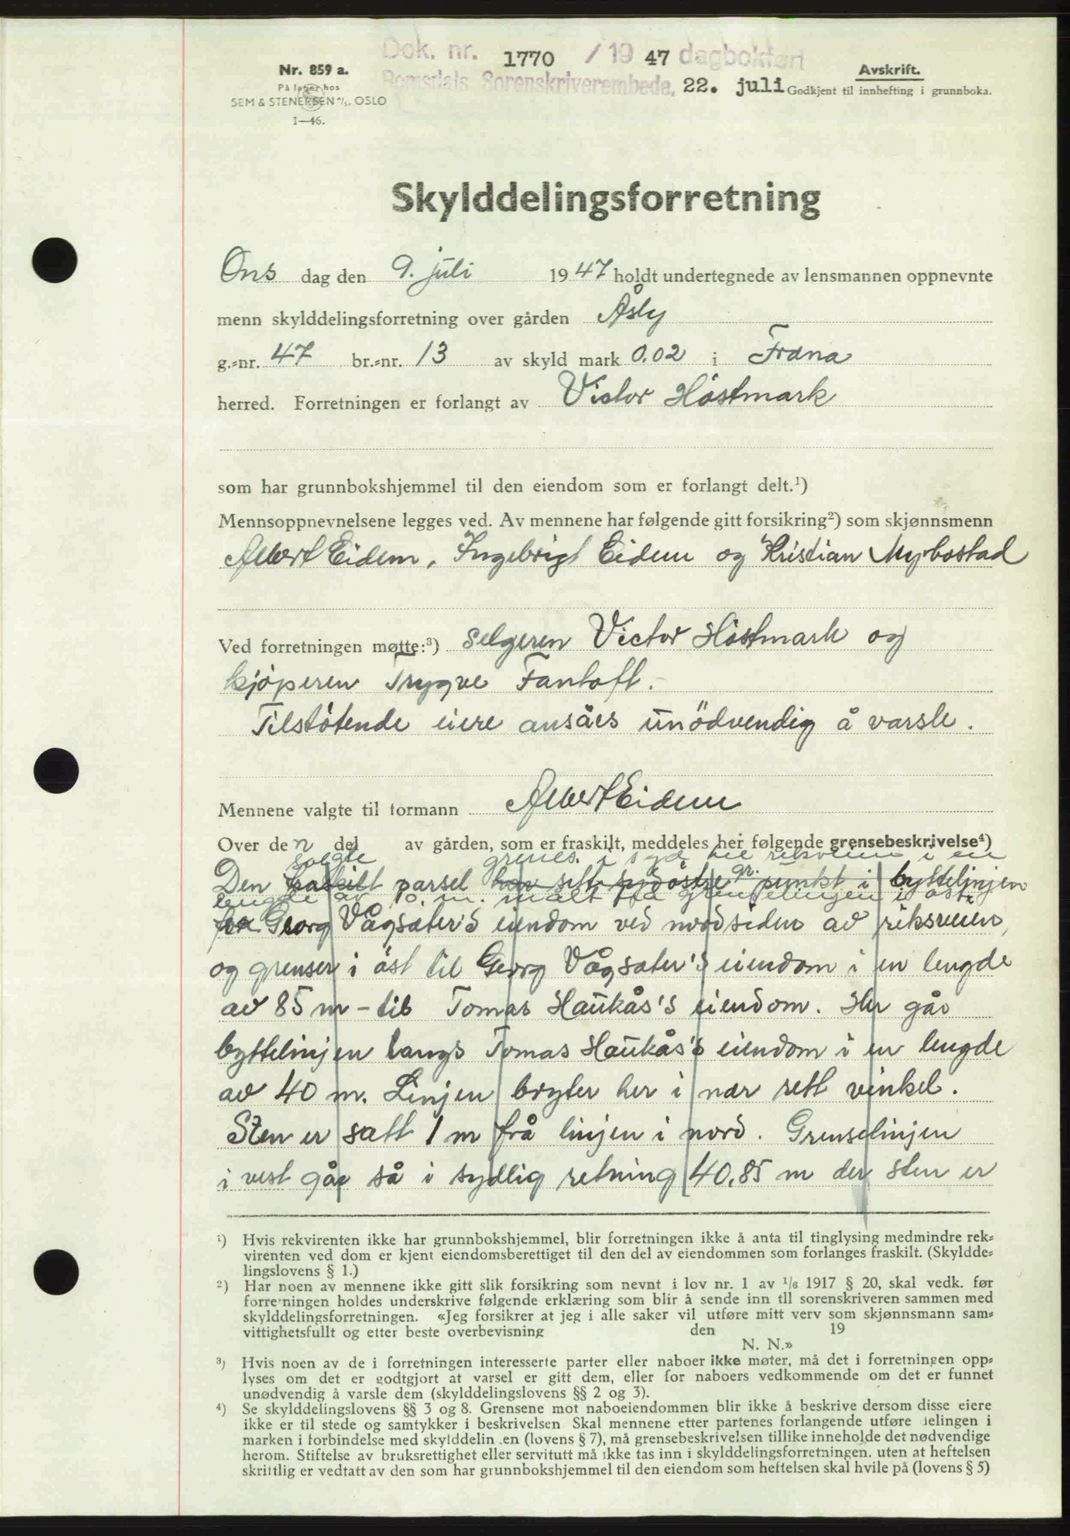 Dok. nr. 1770 / 19 47 dagbokført
Romsdals Sorenskriverembede, 22. juli
Nr. 859 a.
På lager hos
SEM & STENERSEN A/S. OSLO
1—46.
Avskrift.
Godkjent til innhefting i grunnboka.
Skylddelingsforretning
Ons dag den 9. juli 19 47 holdt undertegnede av lensmannen oppnevnte
menn skylddelingsforretning over gården Åsly
g.-nr. 47 br.-nr. 13 av skyld mark 0.02 i Fræna
herred. Forretningen er forlangt av Victor Höstmark
som har grunnbokshjemmel til den eiendom som er forlangt delt.¹)
Mennsoppnevnelsene legges ved. Av mennene har følgende gitt forsikring²) som skjønnsmenn
Albert Eidem, Ingebrigt Eidem og Kristian Myrbostad
Ved forretningen møtte:³) selgeren Victor Höstmark og
kjöperen Trygve Fantoft.
Tilstötende eiere ansåes unödvendig å varsle.
Mennene valgte til formann Albert Eidem
Over den del av gården, som er fraskilt, meddeles her følgende grensebeskrivelse⁴)
solgte grenes i syd til riksveien i en
Den parsel har sitt sydöstre gr. punkt i byttelinjen
lengde av 10 m. målt fra grenselinjen i öst
fra Georg Vågsæter's eiendom ved nordsiden av riksveien,
og grenser i öst til Georg Vågsæter's eiendom i en lengde
av 85 m - til Tomas Haukås's eiendom. Her går
byttelinjen langs Tomas Haukås's eiendom i en lengde
av 40 m. Linjen bryter her i nær rett vinkel.
Sten er satt 1 m frå linjen i nord. Grenselinjen
i vest går så i sydlig retning 40,85 m der sten er
¹) Hvis rekvirenten ikke har grunnbokshjemmel, blir forretningen ikke å anta til tinglysing medmindre rek-
virenten ved dom er kjent eiendomsberettiget til den del av eiendommen som forlanges fraskilt. (Skyldde-
lingslovens § 1.)
²) Har noen av mennene ikke gitt slik forsikring som nevnt i lov nr. 1 av 1/6 1917 § 20, skal vedk. før
forretningen holdes underskrive følgende erklæring som blir å sende inn til sorenskriveren sammen med
skylddelingsforretningen. «Jeg forsikrer at jeg i alle saker vil utføre mitt verv som skjønnsmann sam-
vittighetsfullt og etter beste overbevisning den 19
N. N.»
³) Hvis noen av de i forretningen interesserte parter eller naboer ikke møter, må det i forretningen opp-
lyses om det er godtgjort at varsel er gitt dem, eller for naboers vedkommende om det er funnet
unødvendig å varsle dem (skylddelingslovens §§ 2 og 3).
⁴) Se skylddelingslovens §§ 3 og 8. Grensene mot naboeiendommen blir ikke å beskrive dersom disse eiere
ikke er til stede og samtykker i beskrivelsen Skal mennene etter partenes forlangende utføre delingen i
marken i forbindelse med skylddelingen (lovens § 7), må grensebeskrivelsen tillike inneholde det nødvendige
herom. Stiftelse av bruksrettighet eller servitutt må ikke tas inn i skylddelingsforretningen. uten at heftelsen
skriftlig er vedtatt av den som har grunnbokshjemmel til den eiendom som heftelsen skal hvile på (lovens § 5)